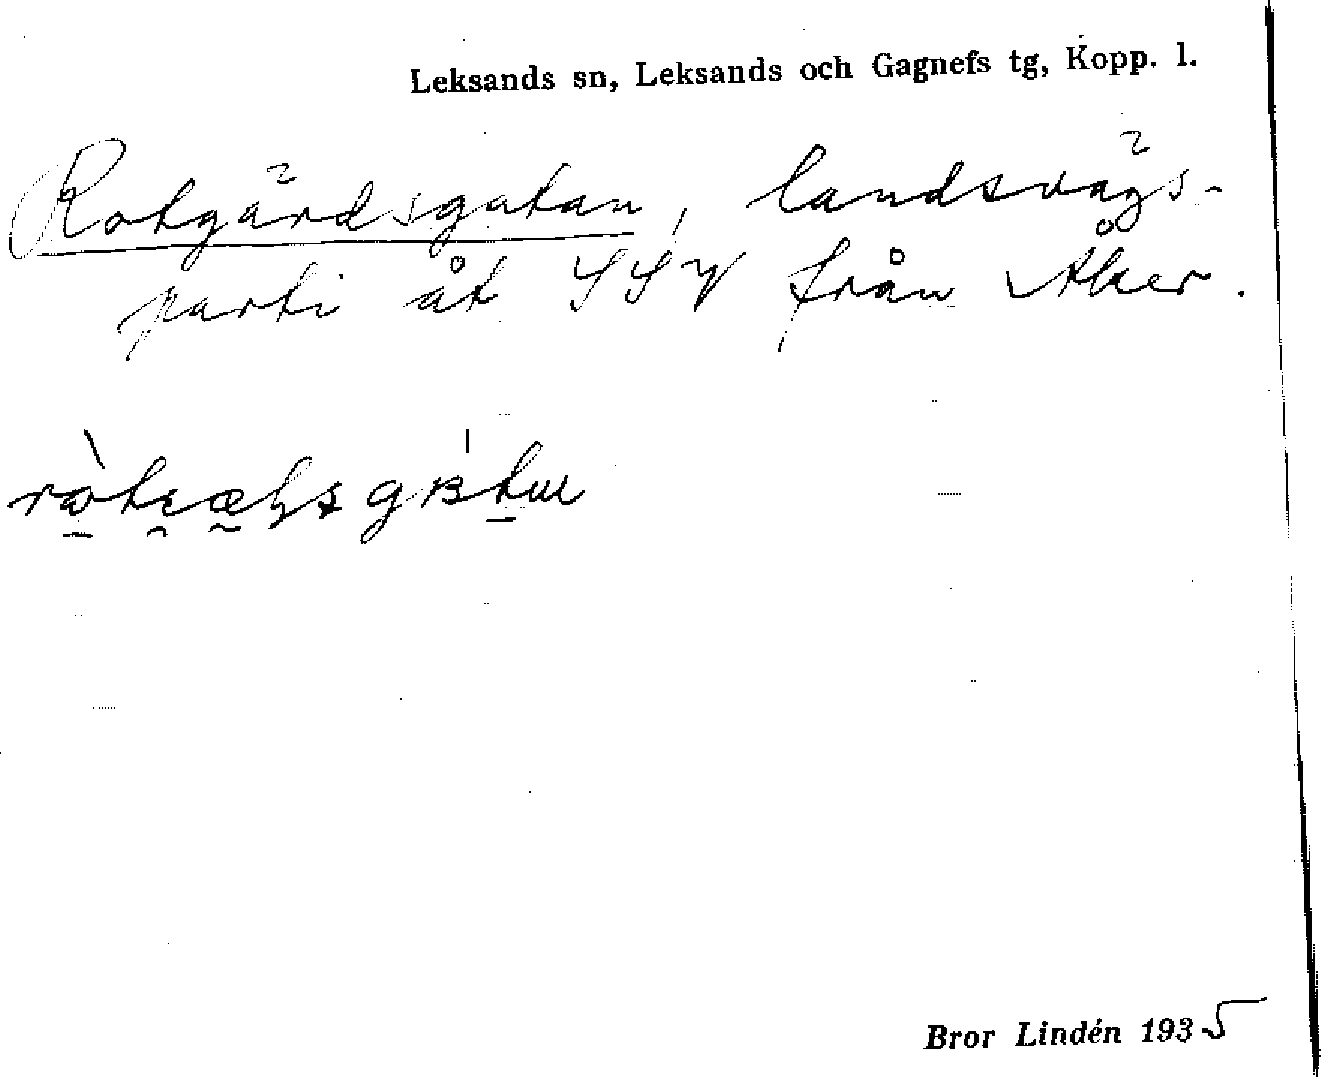 Leksands sn, Leksands och Gagnefs tg, Kopp. l.
Rotgärdsgatan, landsvägs-
parti åt SSV från Åker.
Bror Lindén 1935